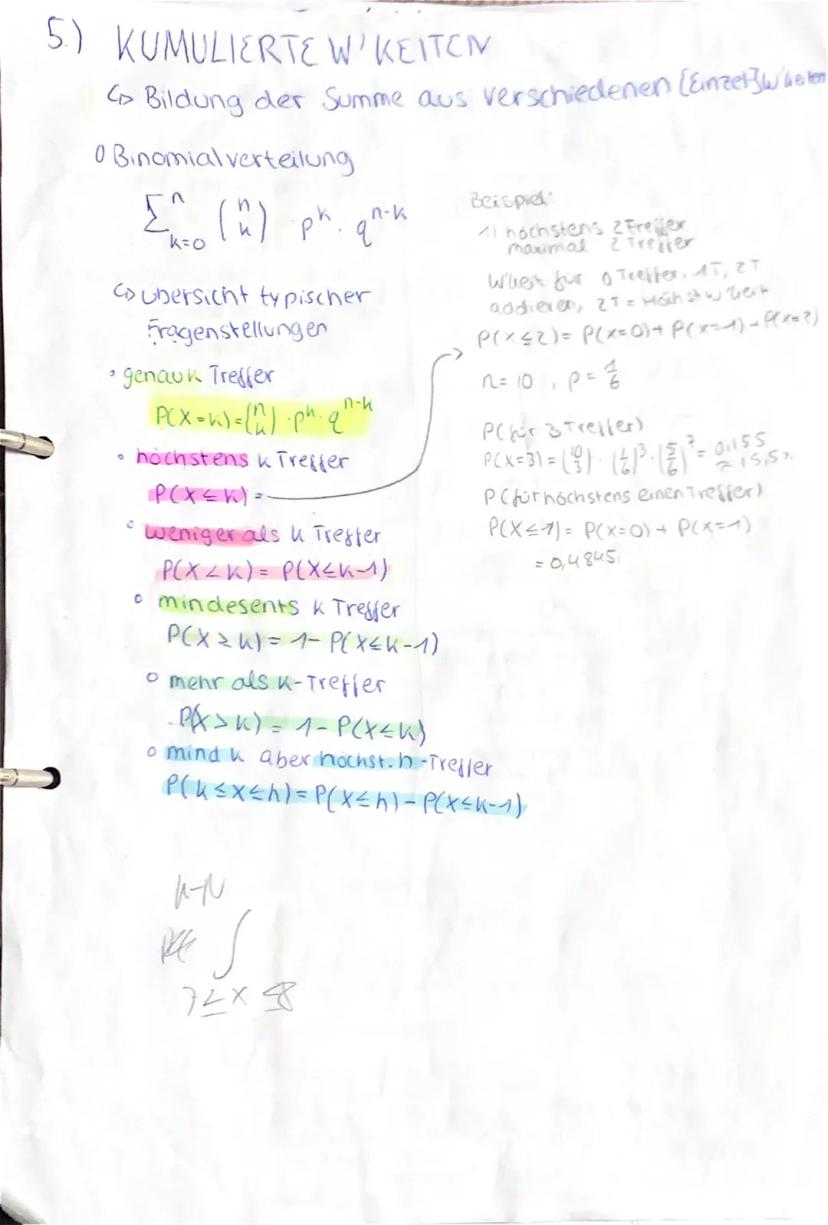 5.) KUMULIERTE W'KEITEN
↳ Bildung der Summe aus verschiedenen [Einzel]W'keiten
o Binomialverteilung
∑ⁿₖ₌₀ (n k) · pᵏ · qⁿ⁻ᵏ
↳ übersicht typischer
Fragenstellungen
• genau k Treffer
P(X=k)=(n k) · pᵏ · qⁿ⁻ᵏ
• höchstens k Treffer
P(X≤k)=
• weniger als k Treffer
P(X<k)= P(X≤k-1)
• mindesents k Treffer
P(X≥k)= 1- P(X≤k-1)
o mehr als k-Treffer
P(X>k)= 1- P(X≤k)
o mind k aber höchst. h-Treffer
P(k≤x≤h)=P(X≤h)-P(X≤k-1)
Beispiel:
1) höchstens 2 Treffer
maximal 2 Treffer
W'keit für 0 Treffer, 1T, 2T
addieren, 2T = Höchstw'keit
P(X≤2)= P(X=0)+ P(X=1)-P(X=2)
n=10, p=1/6
P(für 3 Treffer)
P(X=3)=(10 3) · (1/6)³ · (5/6)⁷= 0,155
≈ 15,5%
P(für höchstens einen Treffer)
P(X≤1)= P(X=0) + P(X=1)
= 0,4845
7≤X≤8